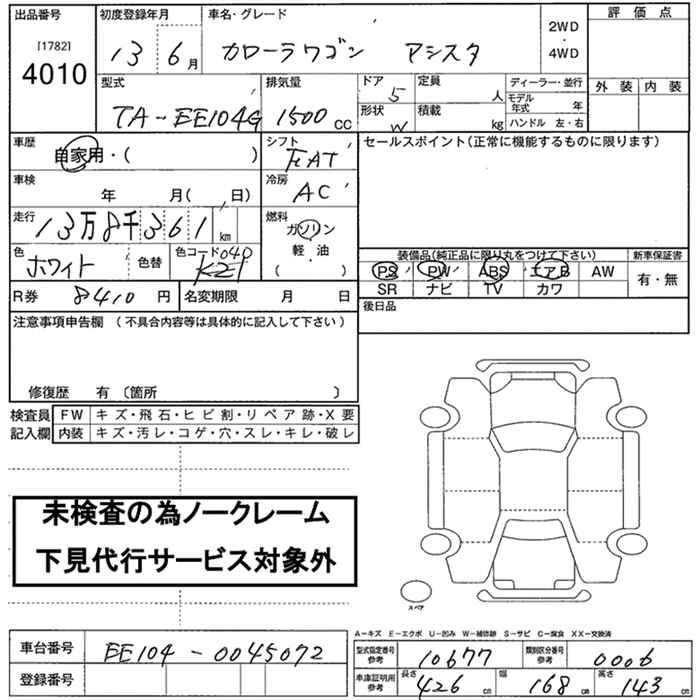 出品番号 初度登録年月 車名・グレード 評価点
[1782] 4010 13 6月 カローラワゴン アシスタ 2WD・4WD
型式 排気量 ドア 定員 ディーラー・並行 外装 内装
TA-EE104G 1500cc 5 人 モデル年式 年
形状 積載 W kg ハンドル 左・右
車歴 シフト セールスポイント(正常に機能するものに限ります)
自家用・( ) FAT
車検 冷房
年 月( 日) AC
走行 燃料
13万8千361km ガソリン
軽・油
( )
色 色替 色コード 040
ホワイト 装備品(純正品に限り丸をつけて下さい) 新車保証書
PS PW ABS エアB AW 有・無
SR ナビ TV カワ
R券 8410円 名変期限 月 日 後日品
注意事項申告欄 (不具合内容等は具体的に記入して下さい)
修復歴 有 〔箇所 〕
検査員 FW キズ・飛石・ヒビ割・リペア跡・X要
記入欄 内装 キズ・汚レ・コゲ・穴・スレ・キレ・破レ
未検査の為ノークレーム
下見代行サービス対象外
スペア
A−キズ E−エクボ U−凹み W−補修跡 S−サビ C−腐食 XX−交換済
車台番号 EE104-0045072
型式指定番号 参考 10677 類別区分番号 参考 0006
登録番号
車庫証明用 参考 長さ 426cm 幅 168cm 高さ 143cm